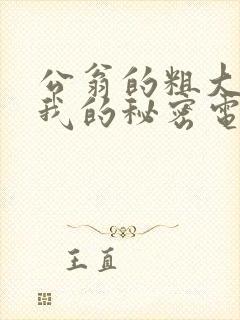 公翁的粗大
我的秘密电
王直